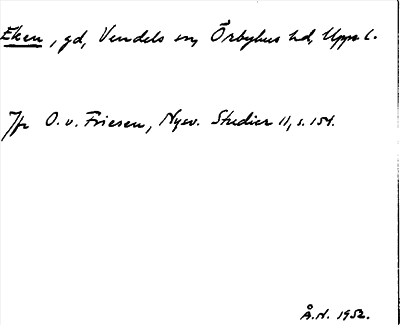 Eken, gd, Vendels sn, Örbyhus hd, Upps l.
Jfr O. v. Friesen, Nysv. Studier 11, s. 154.
Å.N. 1952.